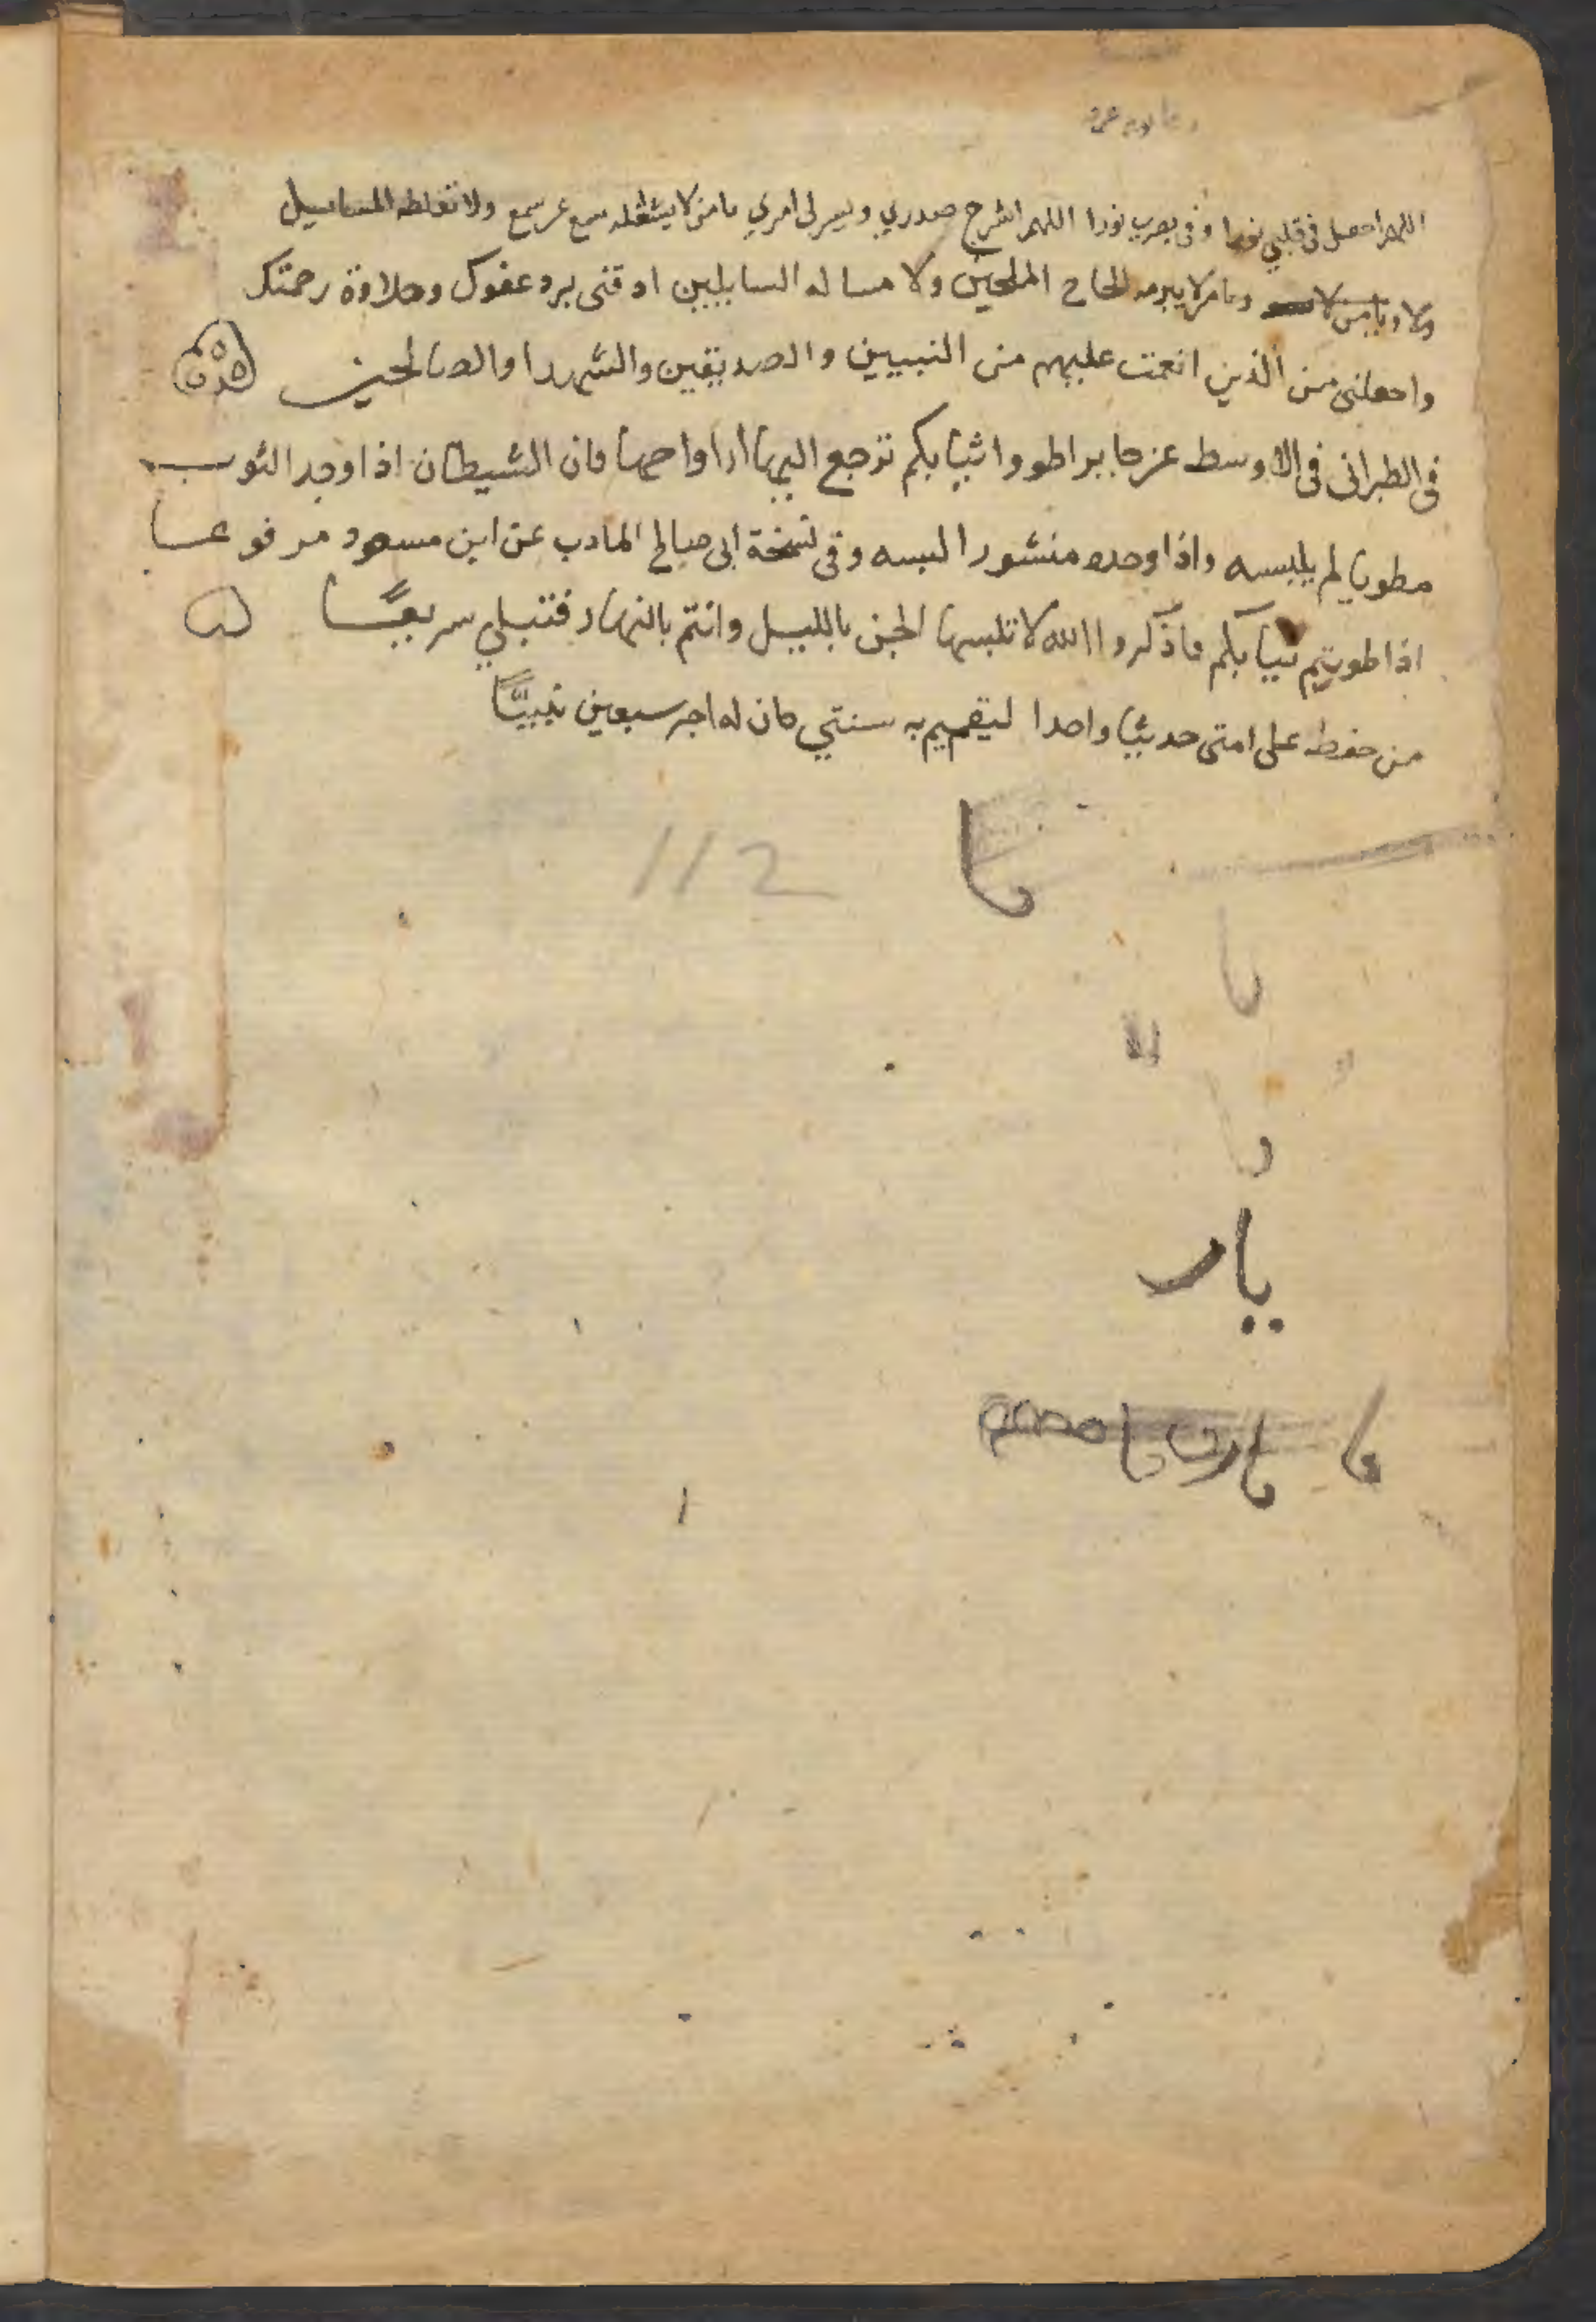 اللهم اجعل في قلبي نورا وفي بصري نورا اللهم اشرح صدري ويسر لي امري يا من لا يشغله سمع عن سمع ولا تغلطه المسايل
ولا ويا من لا ويا من لا يبرمه الحاح الملحين ولا مساله السايلين اذقني برد عفوك وحلاوة رحمتك
واجعلني من الذين انعمت عليهم من النبيين والصديقين والشهدا والصالحين
في الطبراني في الاوسط عن جابر اطووا ثيابكم ترجع اليها ارواحها فان الشيطان اذا وجد الثوب
مطويا لم يلبسه واذا وجده منشورا لبسه وفي نسخة ابي صالح المادب عن ابن مسعود مرفوعا
اذا طويتم ثيابكم فاذكروا الله لا تلبسها الجن بالليل وانتم بالنهار فتبلي سريعًا
من حفظ على امتي حديثا واحدا ليقيم به سنتي كان له اجر سبعين نبيًّا
112
يا
يار